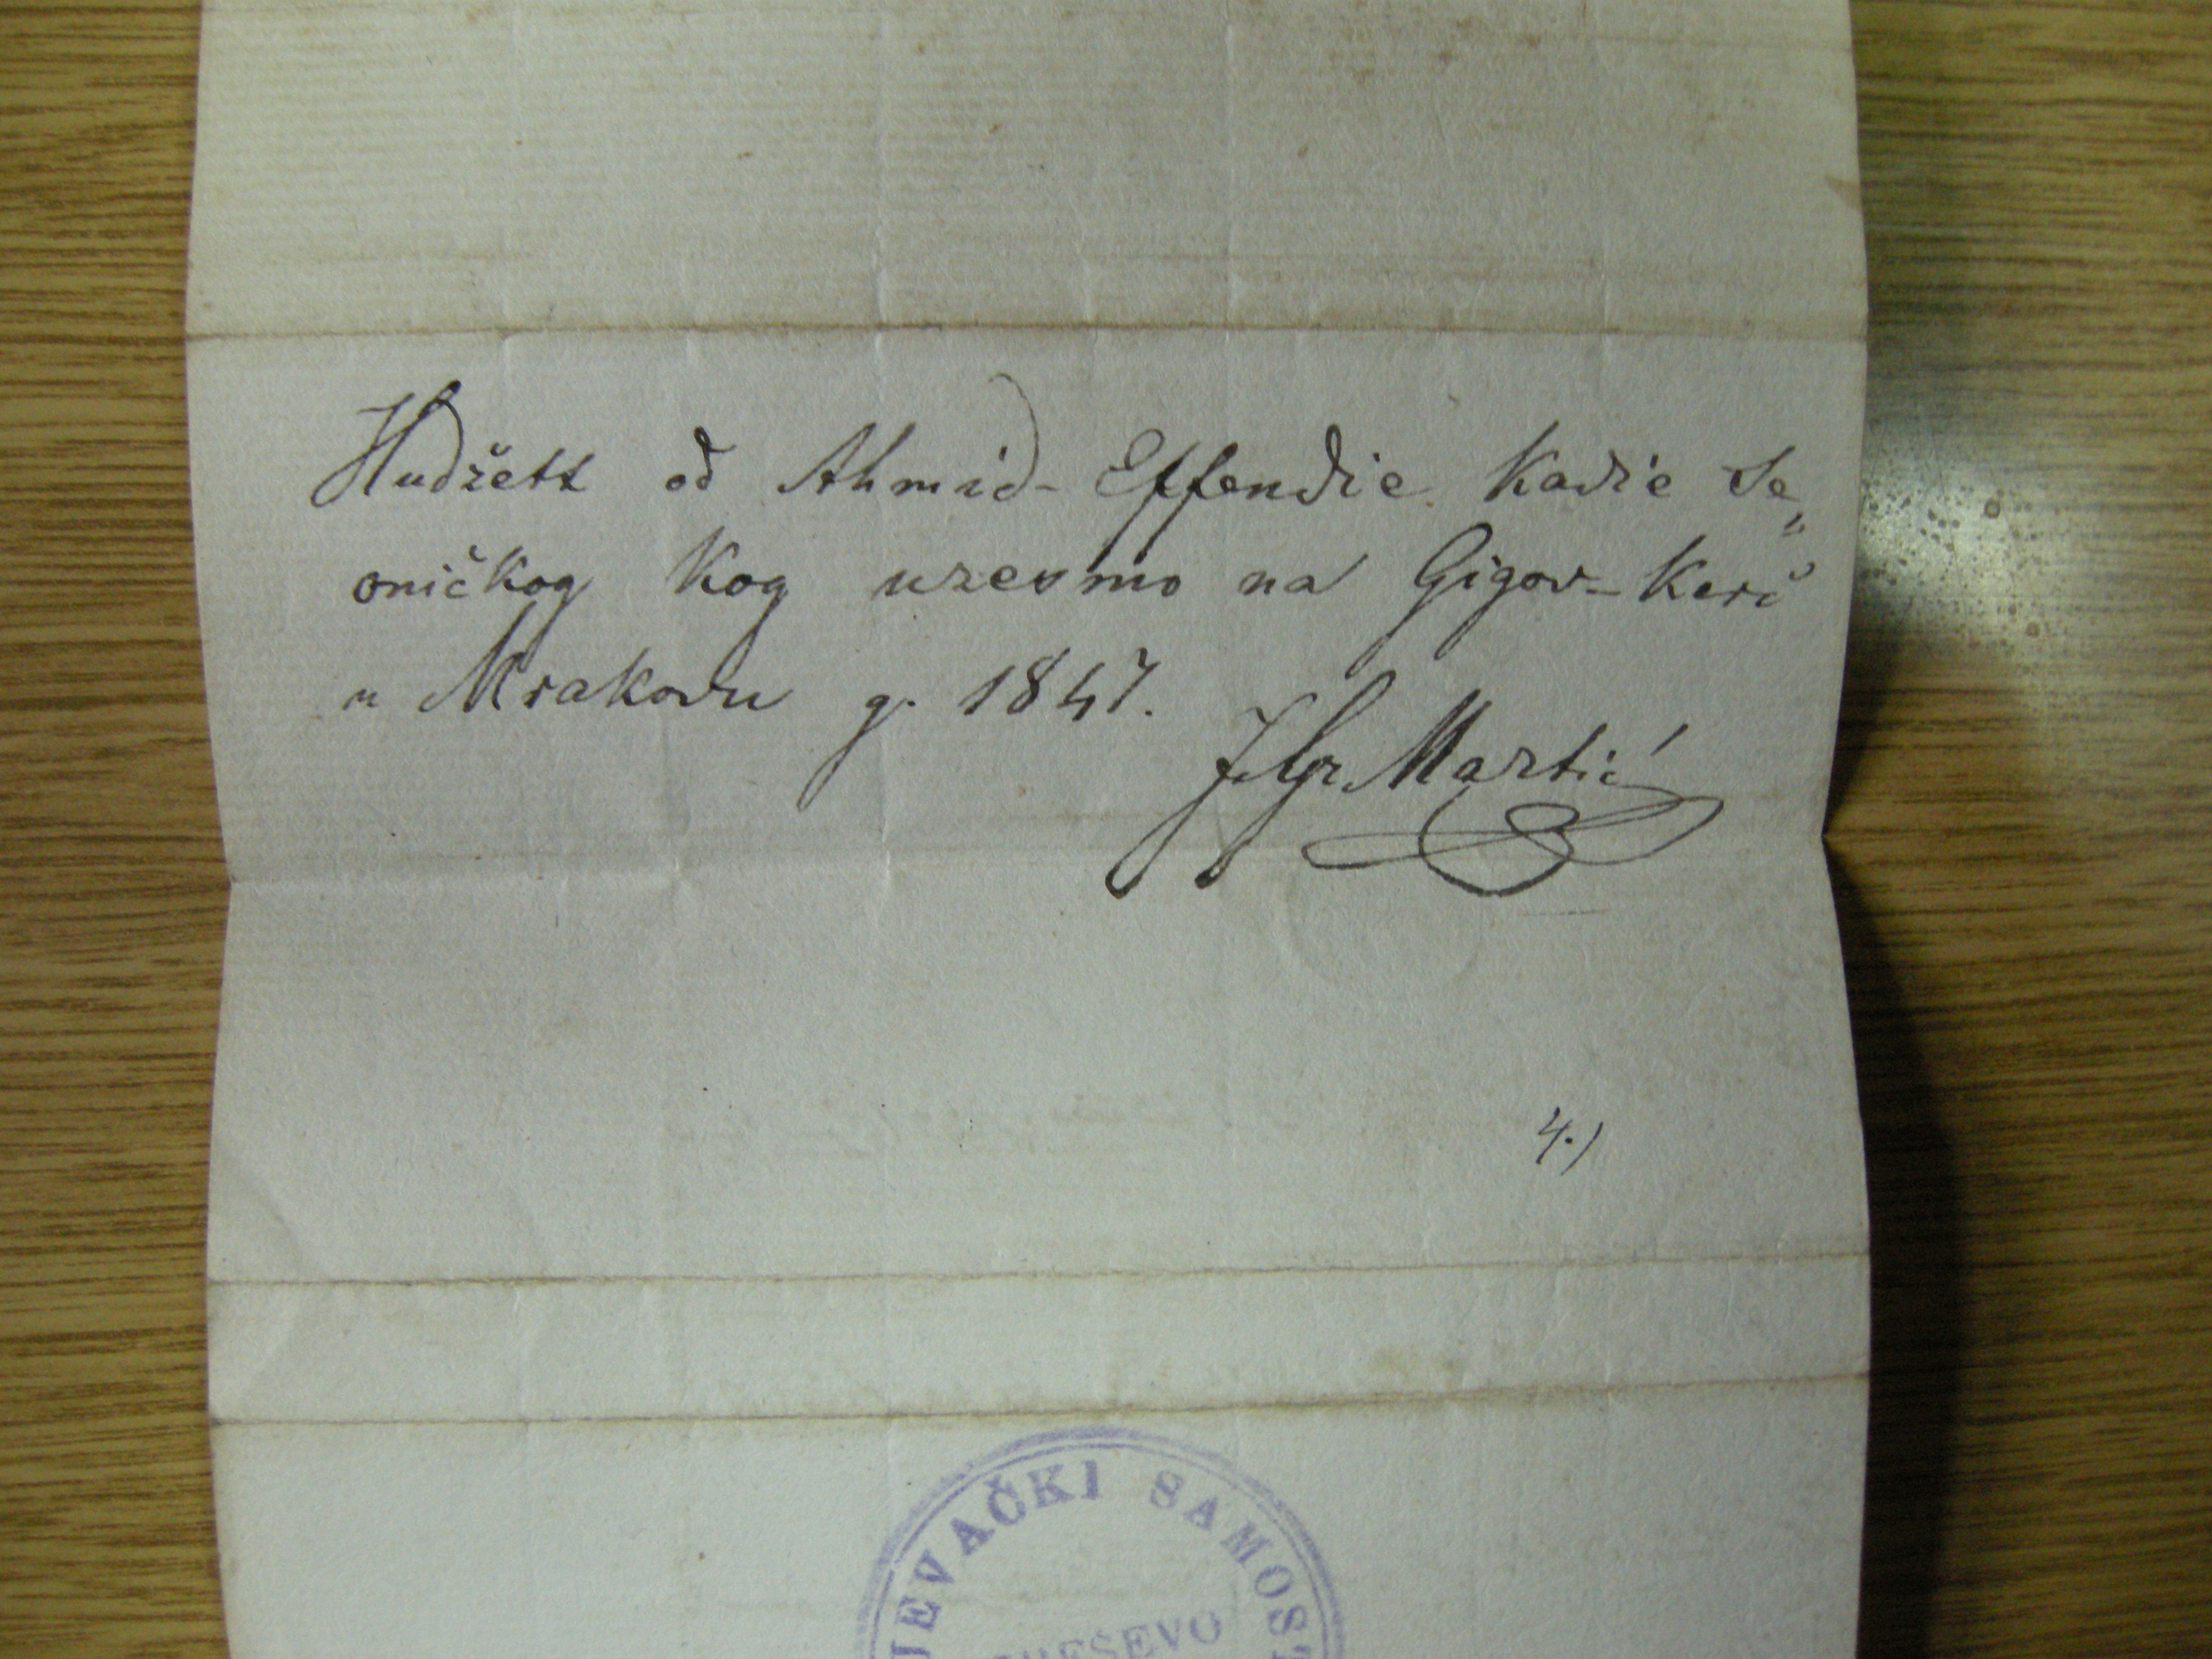 Hudžett od Ahmid-Effendie Kadie Se„
oničkog kog uzesmo na Gigov-Kerč
u Mrakovu g. 1847.
fGr. Martić
4.)
JEVAČKI SAMOS
REŠEVO